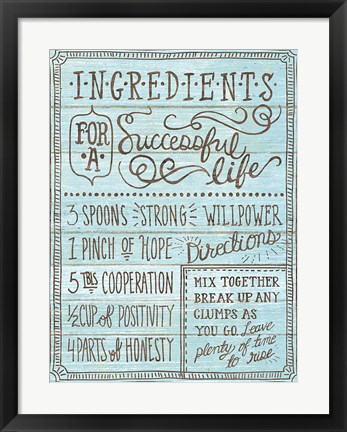 INGREDIENTS
FOR A
Successful
life
3 SPOONS STRONG WILLPOWER
1 PINCH OF HOPE
5 TBS COOPERATION
1/2 CUP of POSITIVITY
4 PARTS of HONESTY
Directions
MIX TOGETHER
BREAK UP ANY
CLUMPS AS
YOU GO. Leave
plenty of time
to rise